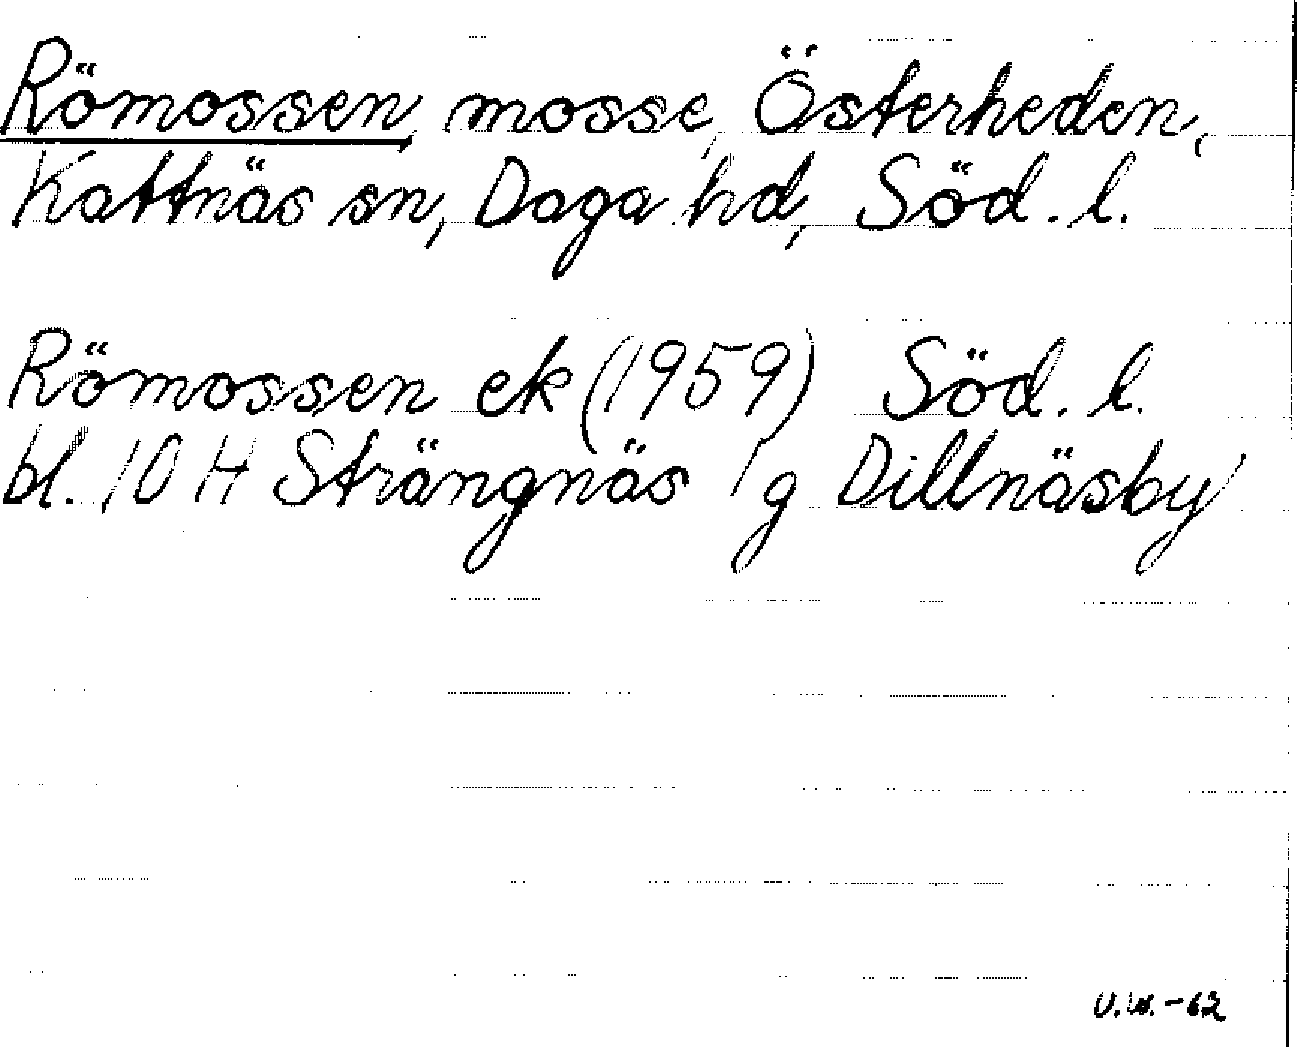 Römossen, mosse, Österheden,
Kattnäs sn, Daga hd, Söd. l.
Römossen ek (1959) Söd. l.
bl. 10 H Strängnäs 1 g Dillnäsby
U.W.-62